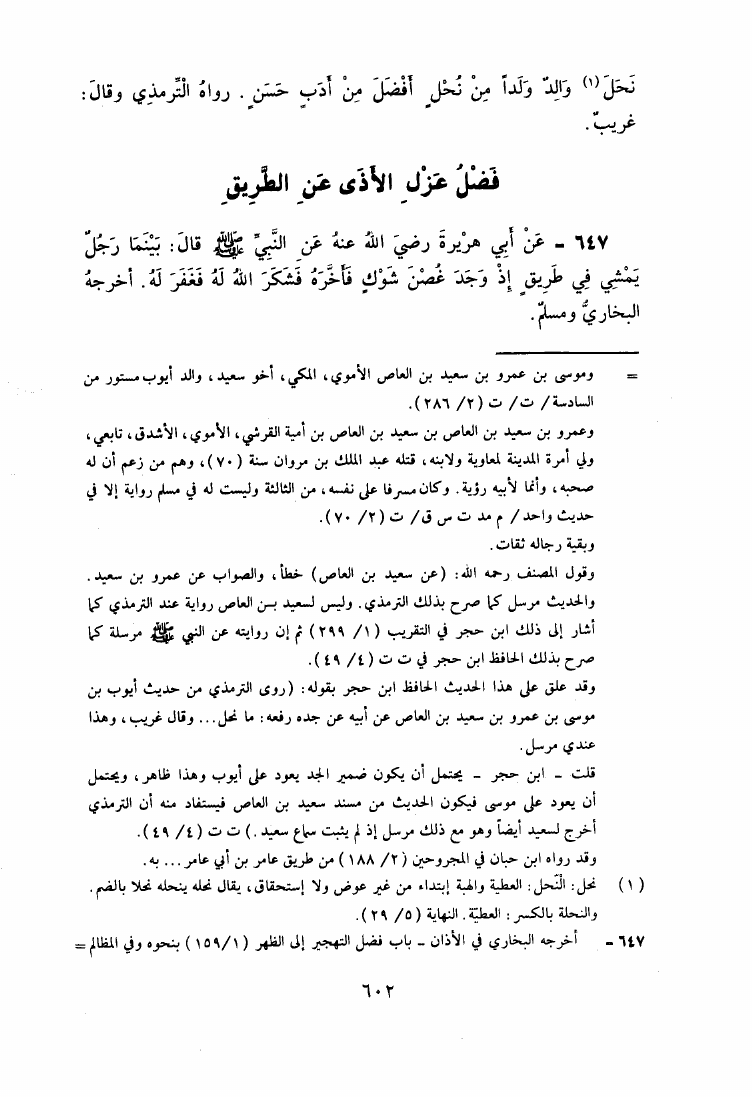 نَحَلَ(١) وَالِدٌ وَلَداً مِنْ نُحْلٍ أَفْضَلَ مِنْ أَدَبٍ حَسَنٍ . رواهُ الْتِّرمذِي وقالَ:
غريبٌ.
فَضْلُ عَزْلِ الأَذَى عَنِ الطَّرِيقِ
٦٤٧ - عَنْ أَبِي هرْيرةَ رضيَ اللهُ عنهُ عَنِ النَّبِيِّ ﷺ قالَ: بَيْنَمَا رَجُلٌ
يَمْشِي فِي طَرِيقٍ إِذْ وَجَدَ غُصْنَ شَوْكٍ فَأَخَّرَهُ فَشَكَرَ اللهُ لَهُ فَغَفَرَ لَهُ. أخرجهُ
البخاريُّ ومسلمٌ.
= وموسى بن عمرو بن سعيد بن العاص الأموي، المكي، أخو سعيد، والد أيوب مستور من
السادسة/ ت/ ت (٢/ ٢٨٦).
وعمرو بن سعيد بن العاص بن سعيد بن العاص بن أمية القرشي، الأموي، الأشدق، تابعي،
ولي أمرة المدينة لمعاوية ولابنه، قتله عبد الملك بن مروان سنة (٧٠)، وهم من زعم أن له
صحبه، وأنما لأبيه رؤية. وكان مسرفا على نفسه، من الثالثة وليست له في مسلم رواية إلا في
حديث واحد/ م مد ت س ق/ ت (٢/ ٧٠).
وبقية رجاله ثقات.
وقول المصنف رحمه الله: (عن سعيد بن العاص) خطأ، والصواب عن عمرو بن سعيد.
والحديث مرسل كما صرح بذلك الترمذي. وليس لسعيد بن العاص رواية عند الترمذي كما
أشار إلى ذلك ابن حجر في التقريب (١/ ٢٩٩) ثم إن روايته عن النبي ﷺ مرسلة كما
صرح بذلك الحافظ ابن حجر في ت ت (٤/ ٤٩).
وقد علق على هذا الحديث الحافظ ابن حجر بقوله: (روى الترمذي من حديث أيوب بن
موسى بن عمرو بن سعيد بن العاص عن أبيه عن جده رفعه: ما نحل... وقال غريب، وهذا
عندي مرسل.
قلت - ابن حجر - يحتمل أن يكون ضمير الجد يعود على أيوب وهذا ظاهر، ويحتمل
أن يعود على موسى فيكون الحديث من مسند سعيد بن العاص فيستفاد منه أن الترمذي
أخرج لسعيد أيضاً وهو مع ذلك مرسل إذ لم يثبت سماع سعيد.) ت ت (٤/ ٤٩).
وقد رواه ابن حبان في المجروحين (٢/ ١٨٨) من طريق عامر بن أبي عامر... به.
(١) نحل: النّحل: العطية والهبة إبتداء من غير عوض ولا إستحقاق، يقال نحله ينحله نحلا بالضم.
والنحلة بالكسر: العطيّة. النهاية (٥/ ٢٩).
٦٤٧ - أخرجه البخاري في الأذان - باب فضل التهجير إلى الظهر (١٥٩/١) بنحوه وفي المظالم =
٦٠٢